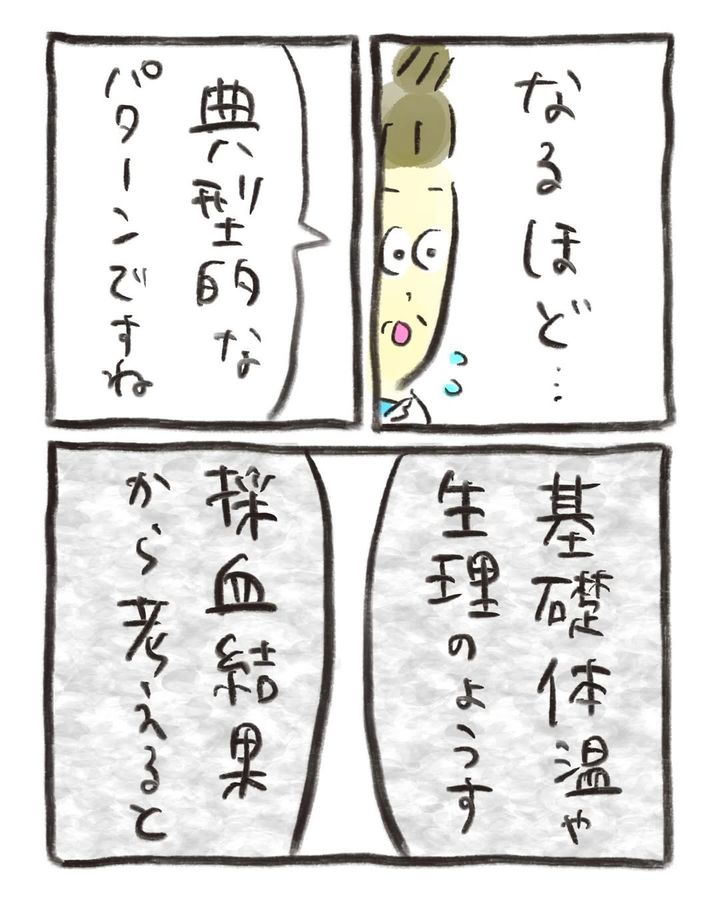 なるほど…
典型的な
パターンですね
基礎体温や
生理のようす
採血結果
から考えると